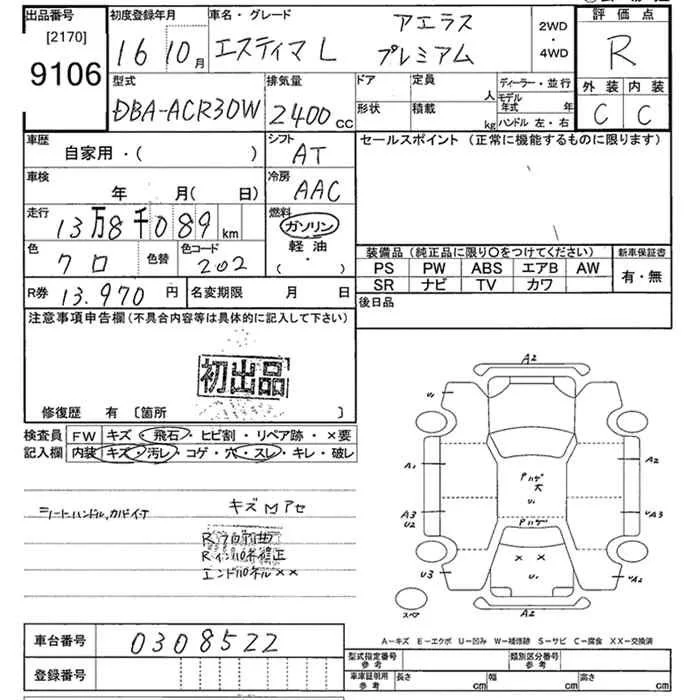 出品番号
[2170]
9106
初度登録年月
16 10月
車名・グレード
エスティマL アエラス プレミアム
2WD
・
4WD
評価点
R
外装 内装
C C
型式
DBA-ACR30W
排気量
2400 cc
ドア
定員
人
形状
積載
kg
ディーラー・並行
モデル年式 年
ハンドル 左・右
車歴
自家用・( )
シフト
AT
セールスポイント (正常に機能するものに限ります)
車検
年 月( 日)
冷房
AAC
走行
13万8千089 km
燃料
ガソリン
軽油
( ・ )
色
クロ
色替
色コード
202
装備品(純正品に限り○をつけてください)
新車保証書
PS PW ABS エアB AW
SR ナビ TV カワ
有・無
R券 13.970 円
名変期限 月 日
後日品
注意事項申告欄(不具合内容等は具体的に記入して下さい)
初出品
修復歴 有 〔箇所 〕
検査員
記入欄
FW キズ・飛石・ヒビ割・リペア跡・×要
内装 キズ・汚レ・コゲ・穴・スレ・キレ・破レ
キズMアセ
エンドパネル××
A2
U1
A1
A2
Pハゲ
大
U1
A3
U2
Pハゲ
UA3
× ×
U1
U3
UA2
A2
スペア
A−キズ E−エクボ U−凹み W−補修跡 S−サビ C−腐食 XX−交換済
車台番号
0308522
登録番号
型式指定番号
参考
類別区分番号
参考
車庫証明用
参考
長さ cm
幅 cm
高さ cm